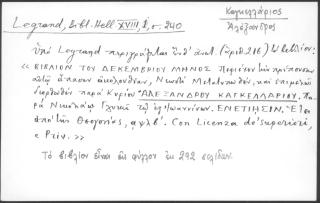 Legrand, Bibl. Hell XVIII, 1, σ. 240
Καγκελλάριος
Ἀλέξανδρος
Ὑπὸ Legrand περιγράφεται ὑπ' ἀριθ. (ἀριθ. 216) τὸ βιβλίον:
« ΒΙΒΛΙΟΝ ΤΟΥ ΔΕΚΕΜΒΡΙΟΥ ΜΗΝΟΣ Περιέχον τὴν πρέπουσαν
αὐτῷ ἅπασαν ἀκολουθίαν, Νεωστὶ Μετατυπωθὲν, καὶ ἐπιμελῶς
διορθωθὲν παρὰ Κυρίου ἈΛΕΞΑΝΔΡΟΥ ΚΑΓΚΕΛΛΑΡΙΟΥ. Πα-
ρὰ Νικολάῳ Γλυκεῖ τῷ ἐξ Ἰωαννίνων. ΕΝΕΤΙΗΣΙΝ. Ἔτει
ἀπὸ τῆς Θεογονίας, αψλβ'. Con Licenza de' superiori,
e Priv. »
Τὸ βιβλίον εἶναι εἰς φύλλον ἐκ 292 σελίδων.